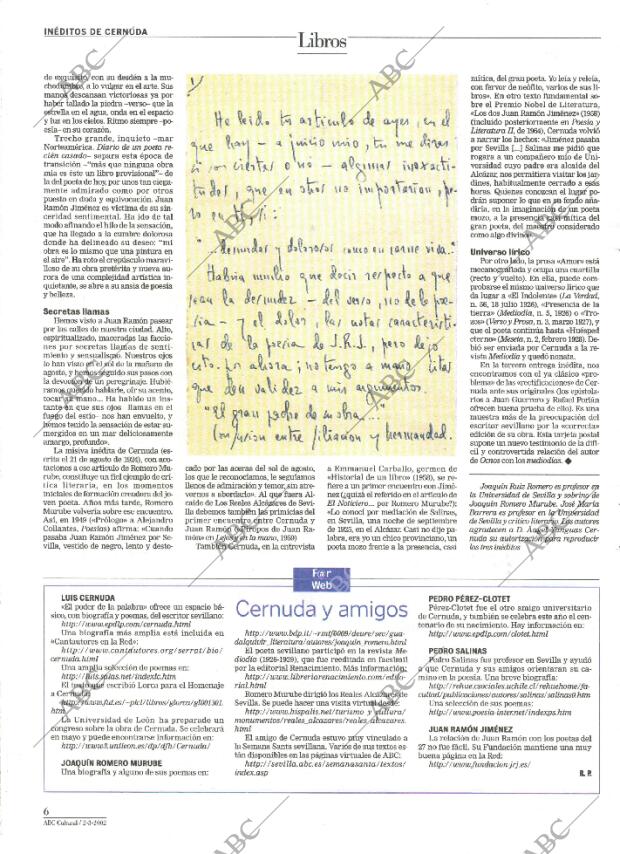 INÉDITOS DE CERNUDA
Libros
de exquisito, con su desdén a la mu-
chedumbre, a lo vulgar en el arte. Sus
manos descansan victoriosas ya por
haber tallado la piedra –verso– que la
estrella en el agua, onda en el espacio
y luz en los cielos. Ritmo siempre –po-
esía– en su corazón.
Trecho grande, inquieto –mar
Norteamérica. Diario de un poeta re-
cién casado– separa esta época de
transición –"más que ninguna obra
mía es éste un libro provisional"– de
la del poeta de hoy, por unos tan ciega-
mente admirado como por otros
puesto en duda y equivocación. Juan
Ramón Jiménez es víctima de su sin-
ceridad sentimental. Ha ido de tal
modo afinando el hilo de la sensación,
que ha llegado a la cumbre dolorosa
donde ha delineado su deseo: "mi
obra es lo mismo que una pintura en
el aire". Ha roto el crepúsculo maravi-
lloso de su obra pretérita y nueva au-
rora de una complejidad artística in-
quietante, se abre a su ansia de poesía
y belleza.
Secretas llamas
Hemos visto a Juan Ramón pasear
por las calles de nuestra ciudad. Alto,
espiritualizado, maceradas las faccio-
nes por secretas llamas de senti-
miento y sensualismo. Nuestros ojos
lo han visto en el sol de la mañana de
agosto, y hemos seguido sus pasos con
la devoción de un peregrinaje. Hubié-
ramos querido hablarle, oír su acento,
tocar su mano... Ha habido un ins-
tante en que sus ojos –llamas en el
fuego del estío– nos han envuelto, y
hemos tenido la sensación de estar su-
mergidos en un mar deliciosamente
amargo, profundo».
La misiva inédita de Cernuda (es-
crita el 21 de agosto de 1926), con aco-
taciones a ese artículo de Romero Mu-
rube, constituye un fiel ejemplo de crí-
tica literaria, en los momentos
iniciales de formación creadora del jo-
ven poeta. Años más tarde, Romero
Murube volvería sobre ese encuentro.
Así, en 1949 («Prólogo» a Alejandro
Collantes, Poesías) afirma: «Cuando
pasaba Juan Ramón Jiménez por Se-
villa, vestido de negro, lento y desto-
1
He leido tu artículo de ayer, en el
que hay – a juicio mio, tu me diras
si son ciertas o no – algunas inexacti-
tudes, que en otros no importarian pe-
ro en ti si:
"...desnudos y dolorosos como en carne viva..."
Habria mucho que decir respecto a que
sean la desnudez – del verso, no de la poe-
sia – y el dolor, las notas característi-
cas de la poesia de J.R.J., pero dejo
esto. Lo ahora; no tengo a mano citas
que den validez a mis argumentos.
"El gran padre de su obra..."
Confusión entre filiacion y hermandad.
cado por las aceras del sol de agosto,
los que le reconocíamos, le seguíamos
llenos de admiración y temor, sin atre-
vernos a abordarlo». Al que fuera Al-
caide de Los Reales Alcázares de Sevi-
lla debemos también las primicias del
primer encuentro entre Cernuda y
Juan Ramón («Tropos de Juan Ra-
món» en Lejos y en la mano, 1959)
También Cernuda, en la entrevista
a Emmanuel Carballo, germen de
«Historial de un libro» (1958), se re-
fiere a un primer encuentro con Jimé-
nez (¿quizá el referido en el artículo de
El Noticiero... por Romero Murube?):
«Lo conocí por mediación de Salinas,
en Sevilla, una noche de septiembre
de 1925, en el Alcázar. Casi no dije pala-
bra, era yo un chico provinciano, un
poeta mozo frente a la presencia, casi
mítica, del gran poeta. Yo leía y releía,
con fervor de neófito, varios de sus li-
bros». En otro texto fundamental so-
bre el Premio Nobel de Literatura,
«Los dos Juan Ramón Jiménez» (1958)
(incluido posteriormente en Poesía y
Literatura II, de 1964), Cernuda volvió
a narrar los hechos: «Jiménez pasaba
por Sevilla [...] Salinas me pidió que
rogara a un compañero mío de Uni-
versidad cuyo padre era alcaide del
Alcázar, nos permitiera visitar los jar-
dines, habitualmente cerrado a esas
horas. Quienes conozcan el lugar po-
drán suponer lo que en ese fondo aña-
diría, en la imaginación de un poeta
mozo, a la presencia casi mítica del
gran poeta, del maestro considerado
como algo divino».
Universo lírico
Por otro lado, la prosa «Amor» está
mecanografiada y ocupa una cuartilla
(recto y vuelto). En ella, puede com-
probarse el mismo universo lírico que
da lugar a «El Indolente» (La Verdad,
n. 56, 18 julio 1926), «Presencia de la
tierra» (Mediodía, n. 5, 1926) o «Tro-
zos» (Verso y Prosa, n. 3, marzo 1927), y
que el poeta continúa hasta «Huésped
eterno» (Meseta, n. 2, febrero 1928). De-
bió ser enviada por Cernuda a la re-
vista Mediodía y quedó nonata.
En la tercera entrega inédita, nos
encontramos con el ya clásico «proble-
ma» de las «rectificaciones» de Cer-
nuda ante sus originales (los epistola-
rios a Juan Guerrero y Rafael Porlán
ofrecen buena prueba de ello). Es una
muestra más de la preocupación del
escritor sevillano por la «correcta»
edición de su obra. Esta tarjeta postal
supone un nuevo testimonio de la difí-
cil y controvertida relación del autor
de Ocnos con los mediodías. ◆
Joaquín Ruiz Romero es profesor en
la Universidad de Sevilla y sobrino de
Joaquín Romero Murube. José María
Barrera es profesor en la Universidad
de Sevilla y crítico literario. Los autores
agradecen a D. Ángel Yanguas Cer-
nuda su autorización para reproducir
los tres inéditos
For
Web
Cernuda y amigos
LUIS CERNUDA
«El poder de la palabra» ofrece un espacio bá-
sico, con biografía y poemas, del escritor sevillano:
http://www.epdlp.com/cernuda.html
Una biografía más amplia está incluida en
«Cantautores en la Red»:
http://www.cantautores.org/serrat/bio/
cernuda.html
Una amplia selección de poemas en:
http://luis.salas.net/indexlc.htm
El poema que escribió Lorca para el Homenaje
a Cernuda:
La Universidad de León ha preparado un
congreso sobre la obra de Cernuda. Se celebrará
en mayo y puede encontrarse información en:
http://www3.unileon.es/dp/dfh/Cernuda/
JOAQUÍN ROMERO MURUBE
Una biografía y alguno de sus poemas en:
http://www.bdp.it/~rmtf0009/decure/sec/gua-
dalquivir_letteratura/autores/joaquin_romero.html
El poeta sevillano participó en la revista Me-
diodía (1926-1929), que fue reeditada en facsímil
por la editorial Renacimiento. Más información:
http://www.libreriarenacimiento.com/edito-
rial.html
Romero Murube dirigió los Reales Alcázares de
Sevilla. Se puede hacer una visita virtual desde:
http://www.hispalis.net/turismo_y_cultura/
monumentos/reales_alcazares/reales_alcazares.
html
El amigo de Cernuda estuvo muy vinculado a
la Semana Santa sevillana. Varios de sus textos es-
tán disponibles en las páginas virtuales de ABC:
http://sevilla.abc.es/semanasanta/textos/
index.asp
PEDRO PÉREZ-CLOTET
Pérez-Clotet fue el otro amigo universitario
de Cernuda, y también se celebra este año el cen-
tenario de su nacimiento. Hay información en:
http://www.epdlp.com/clotet.html
PEDRO SALINAS
Pedro Salinas fue profesor en Sevilla y ayudó
a que Cernuda y sus amigos orientaran su ca-
mino en la poesía. Una breve biografía:
http://rehue.csociales.uchile.cl/rehuehome/fa-
cultad/publicaciones/autores/salinas/salinas0.htm
Una selección de sus poemas:
http://www.poesia-inter.net/indexps.htm
JUAN RAMÓN JIMÉNEZ
La relación de Juan Ramón con los poetas del
27 no fue fácil. Su Fundación mantiene una muy
buena página en la Red:
http://www.fundacion-jrj.es/
R. P.
6
ABC Cultural / 2-3-2002